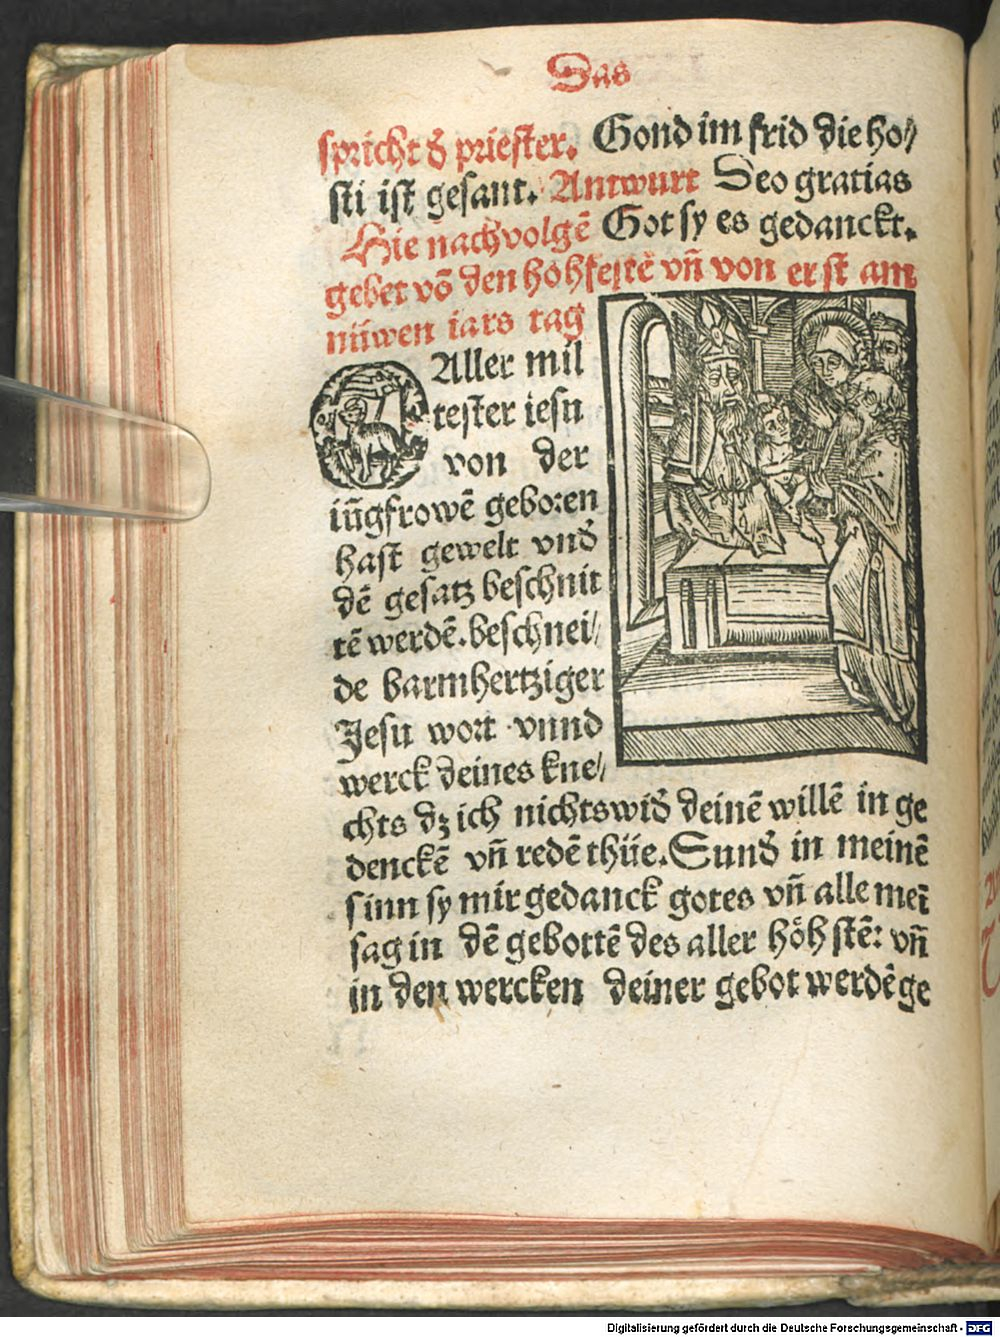 Das
spricht d᷑ priester. Gond im frid die ho/
sti ist gesant. Antwurt Deo gratias
Hie nachvolgē Got sy es gedanckt.
gebet vō den hohfestē vñ von erst am
nüwen iars tag
O Aller mil
tester iesu
von der
iūgfrowē geboren
hast gewelt vnd᷑
dē gesatz beschnit
tē werdē. beschnei/
de barmhertziger
Jesu wort vnnd
werck deines kne/
chts dz ich nichts wid᷑ deinē willē in ge
denckē vñ redē thüe. Sund᷑ in meinē
sinn sy mir gedanck gotes vñ alle meī
sag in dē gebottē des aller höhstē: vñ
in den wercken deiner gebot werdē ge
Digitalisierung gefördert durch die Deutsche Forschungsgemeinschaft - DFG